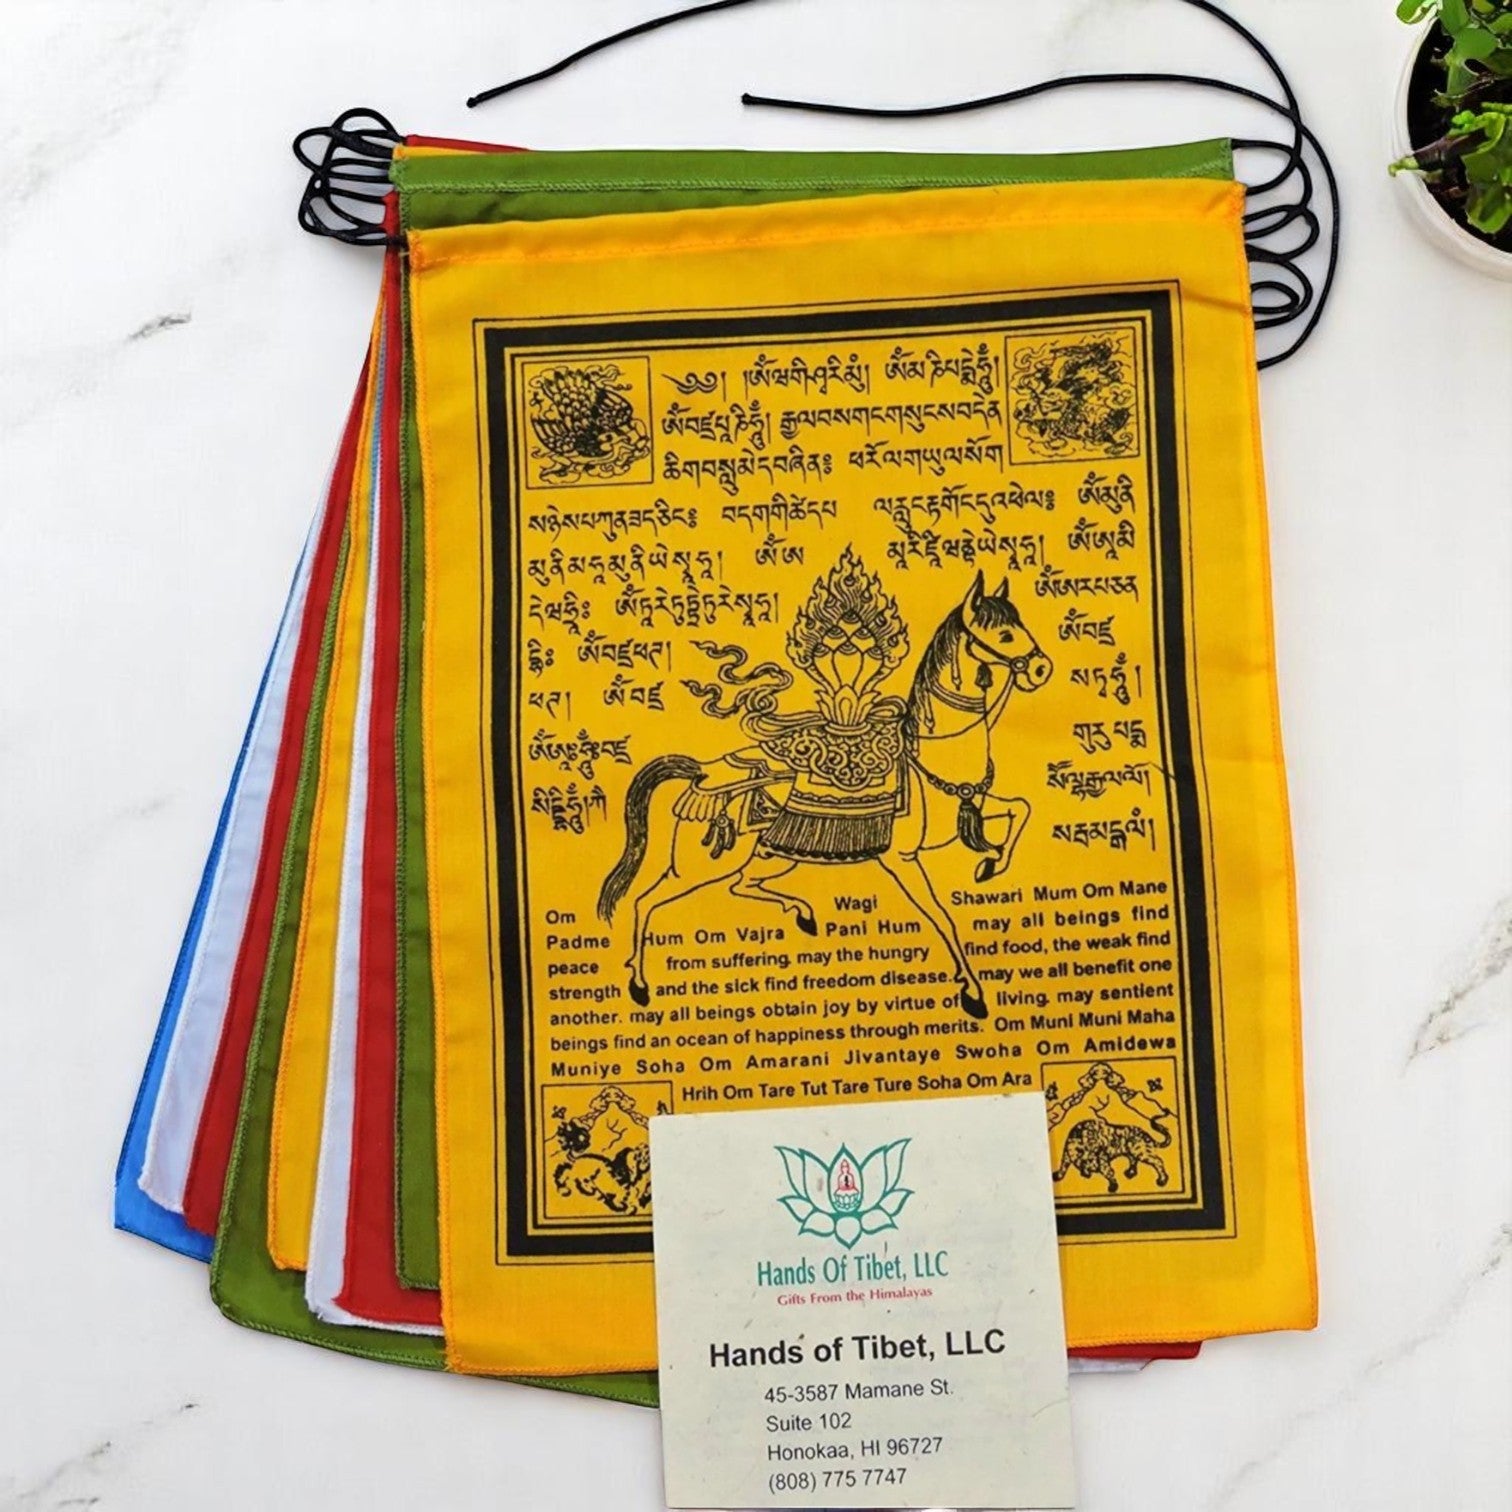 ༄༅། །ཨོཾ་ཝ་གི་ཤྭ་རི་མུཾ། ཨོཾ་མ་ཎི་པདྨེ་ཧཱུྃ།
ཨོཾ་བཛྲ་པཱ་ཎི་ཧཱུྃ། རྒྱལ་བས་གང་གསུངས་བདེན་
ཚིག་བསླུ་མེད་བཞིན༔ ཕ་རོལ་གཡུལ་སོག་
ཨོཾ་མུ་ནི་
མུ་ནི་མ་ཧཱ་མུ་ནི་ཡེ་སྭཱ་ཧཱ།
ཨོཾ་ཨ་
ཨོཾ་ཨ་མི་
དེ་ཝ་ཧྲཱིཿ ཨོཾ་ཏཱ་རེ་ཏུཏྟཱ་རེ་ཏུ་རེ་སྭཱ་ཧཱ།
ཨོཾ་ཨ་ར་པ་ཙ་ན་
ཨོཾ་བཛྲ་
ཕཊ། ཨོཾ་བཛྲ་
ས་ཏྭ་ཧཱུྃ།
ཨོཾ་ཨཱཿཧཱུྃ་བཛྲ་
གུ་རུ་པདྨ་
Om Wagi Shawari Mum Om Mane
Padme Hum Om Vajra Pani Hum may all beings find
peace from suffering. may the hungry find food, the weak find
strength and the sick find freedom disease. may we all benefit one
another. may all beings obtain joy by virtue of living. may sentient
beings find an ocean of happiness through merits. Om Muni Muni Maha
Muniye Soha Om Amarani Jivantaye Swoha Om Amidewa
Hrih Om Tare Tut Tare Ture Soha Om Ara
Hands Of Tibet, LLC
Gifts From the Himalayas
Hands of Tibet, LLC
45-3587 Mamane St.
Suite 102
Honokaa, HI 96727
(808) 775 7747